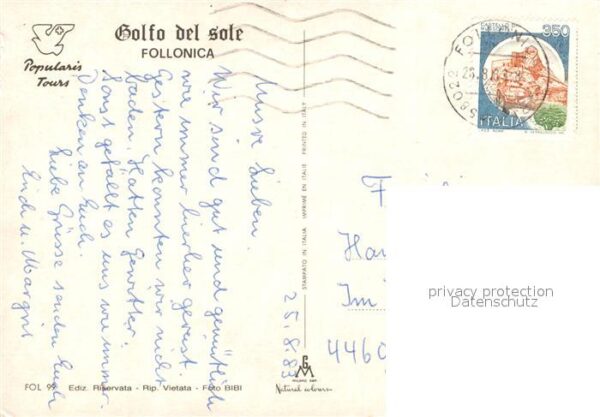 Golfo del sole
FOLLONICA
Popularis
Tours
Unsre Lieben.
Wir sind gut und gemütlich
wie immer hierher gereist.
Gestern konnten wir nicht
baden. Hatten Gewitter.
Sonst gefällt es uns wie immer.
Denken an Euch.
Liebe Grüsse senden Euch
Erich u. Margrit
25.8.83
FOL 99 Ediz. Riservata - Rip. Vietata - Foto BIBI
STAMPATO IN ITALIA IMPRIMÉ EN ITALIE PRINTED IN ITALY
GM
MILANO
Natural colours
58022
350
ITALIA
Im
4460
privacy protection
Datenschutz